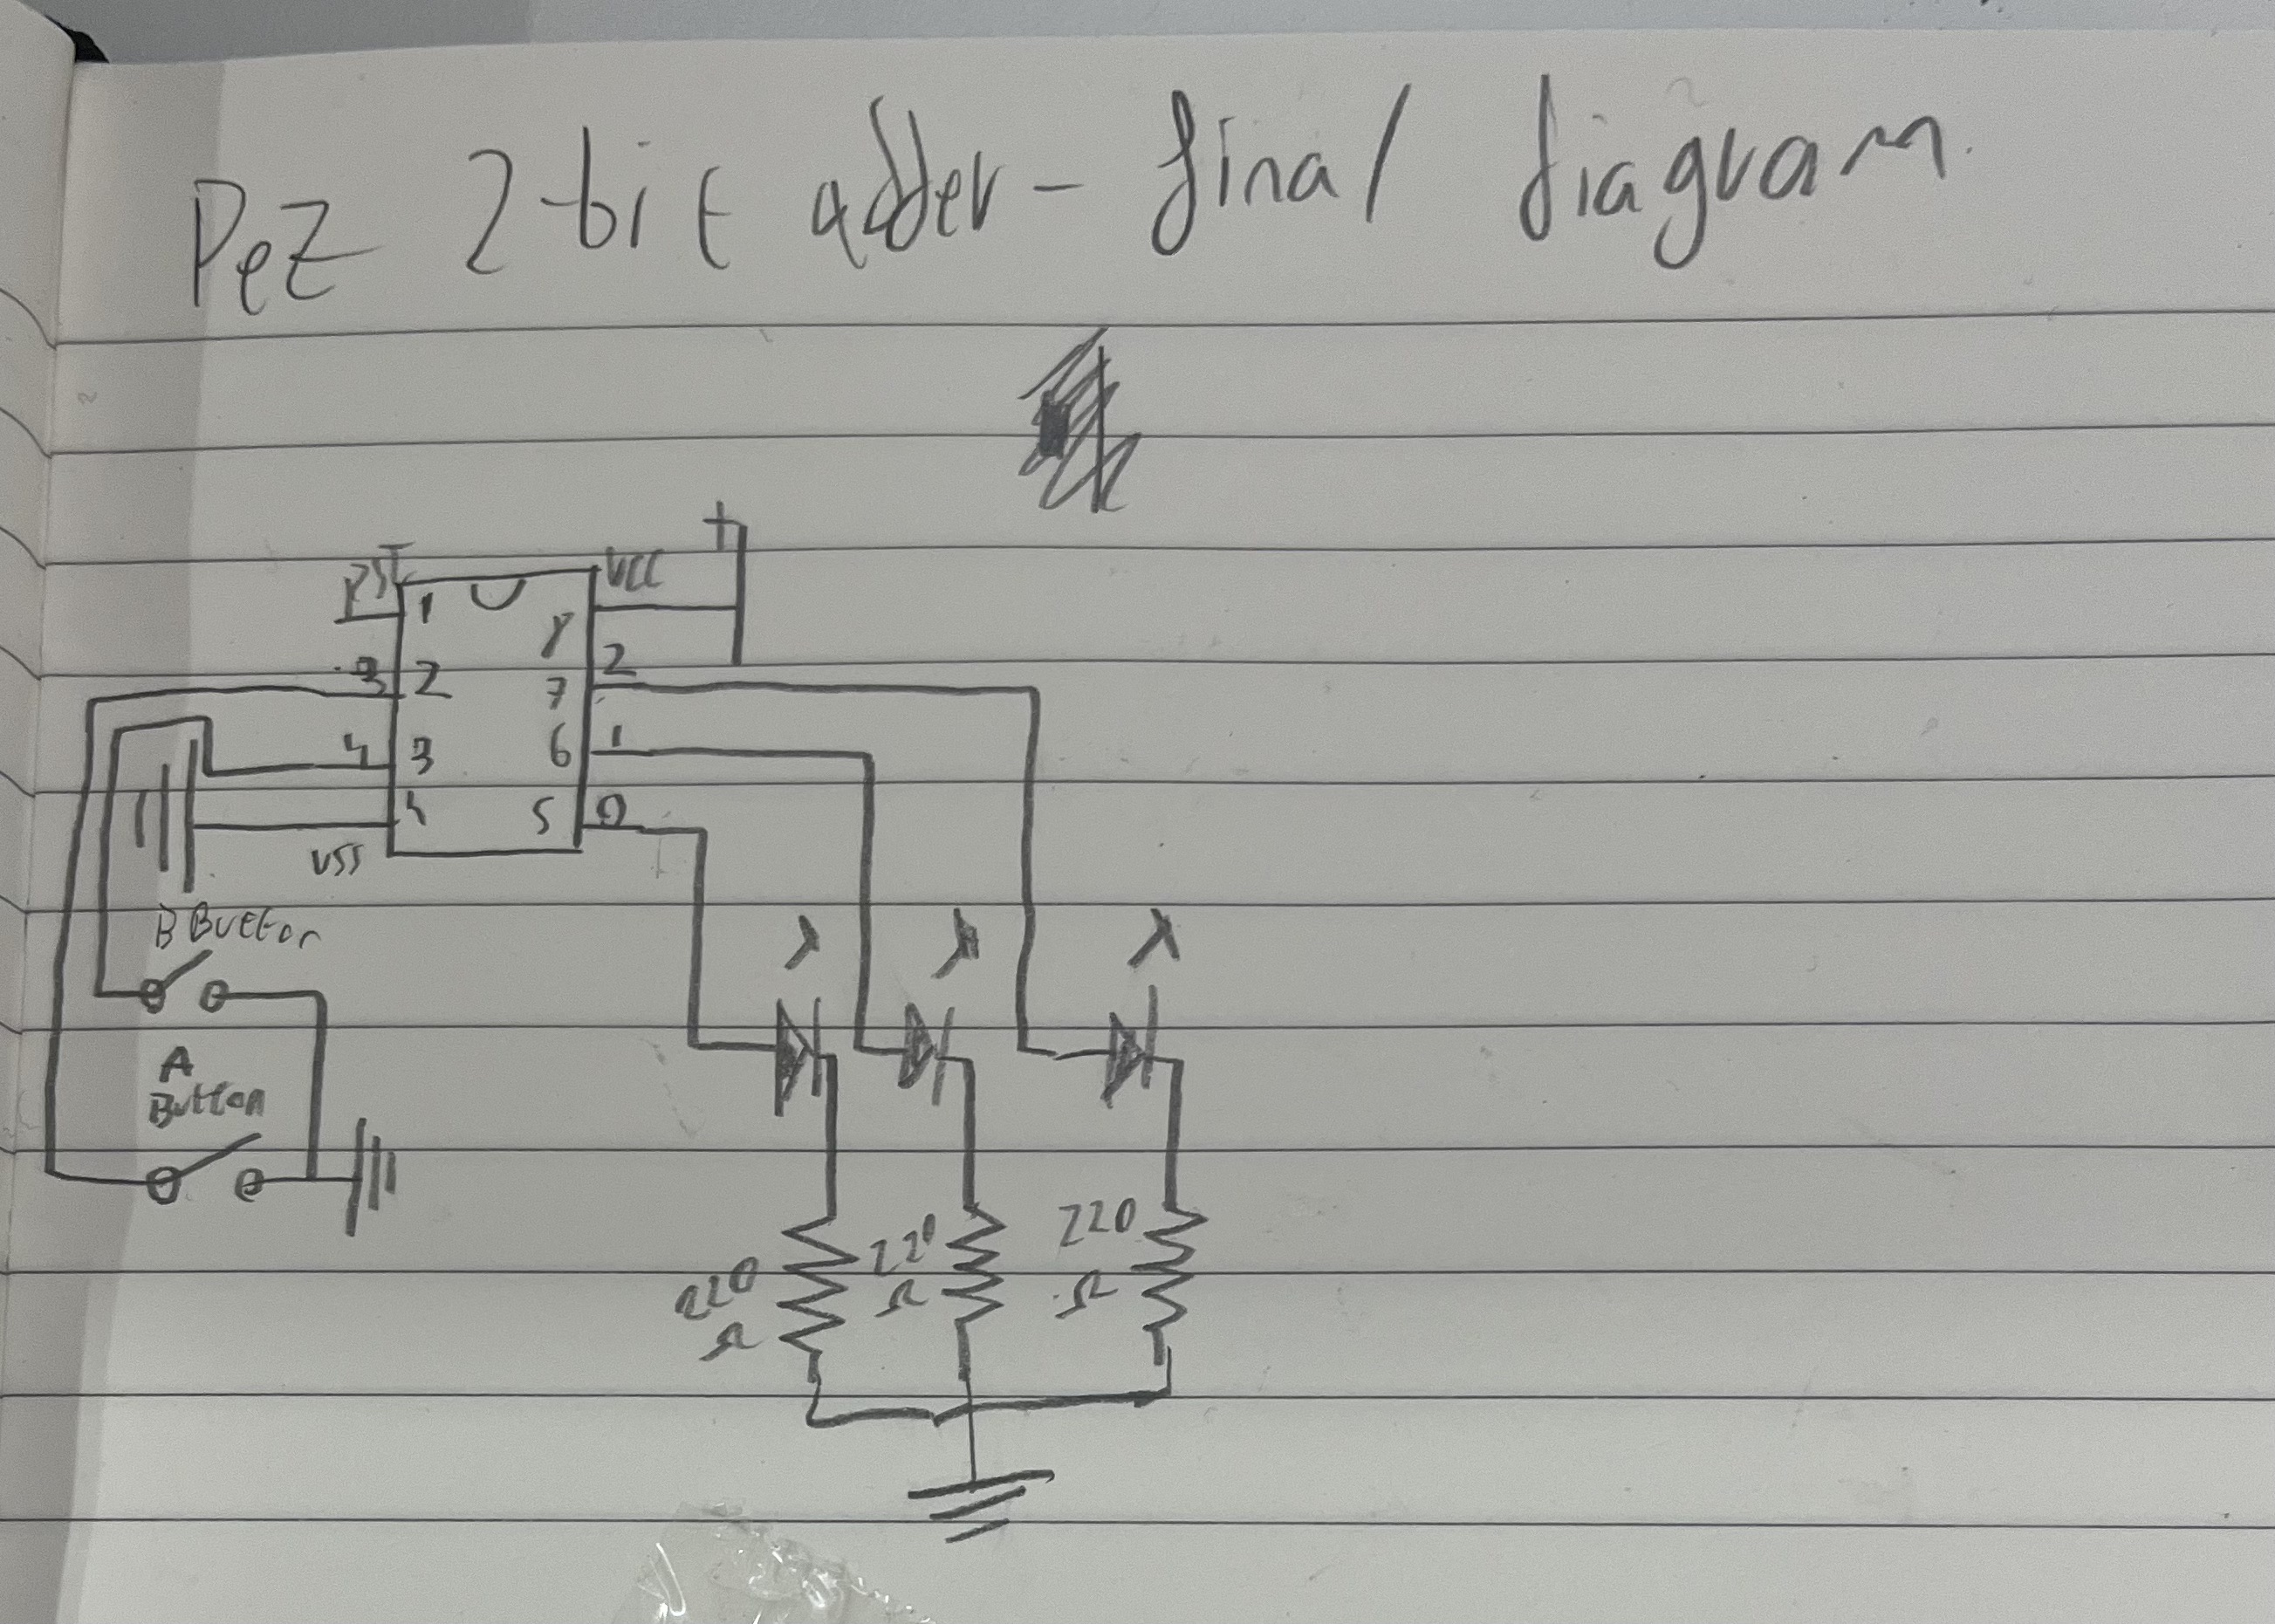 PeZ 2-bit adder - final diagram.
RST
VCC
+
1
8
3 2
7 2
4 3
6 1
4
5 0
VSS
B Button
A
Button
220
Ω
220
Ω
220
Ω